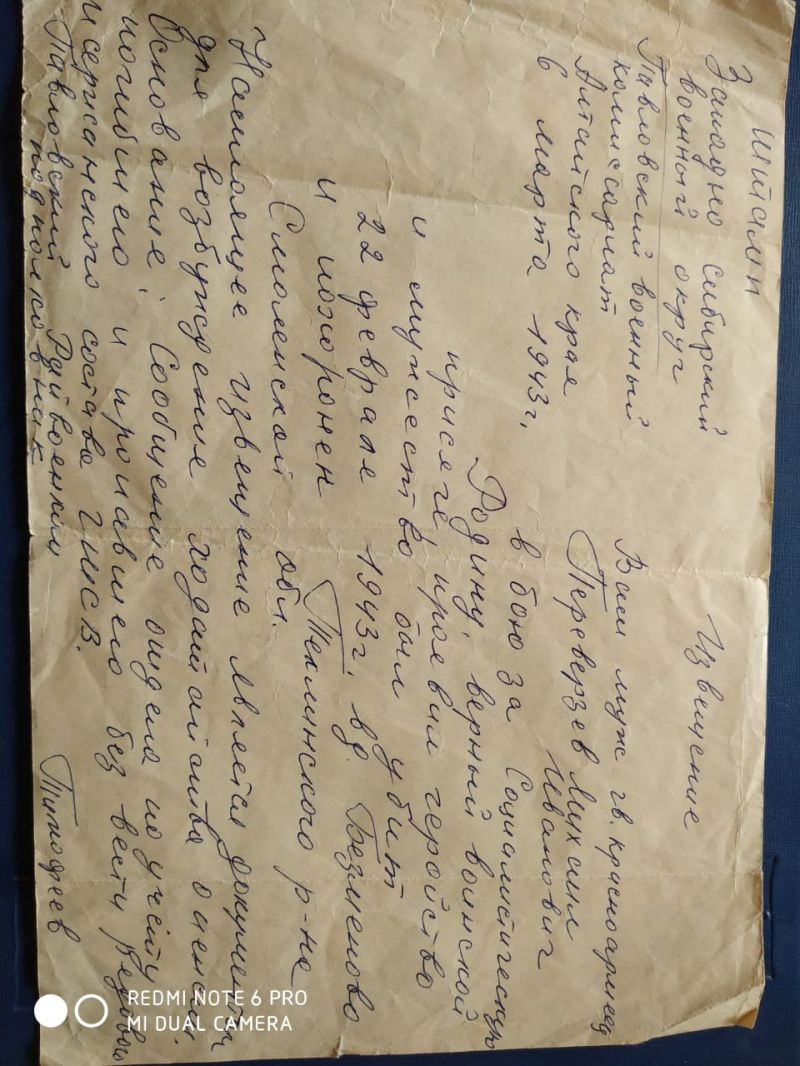 Штамп
Западно Сибирский
военный округ
Павловский военный
комиссариат
Алтайского края
6 марта 1943г.
Извещение
Ваш муж гв. красноармеец
Переверзев Михаил
Иванович
в бою за Социалистическую
Родину, верный воинской
присяге, проявил геройство
и мужество был убит
22 февраля 1943г. в д. Безменово
и похоронен Темкинского р-на
Смоленской обл.
Настоящее извещение является документом
для возбуждения ходатайства о пенсии.
Основание: Сообщение отдела по учёту
погибшего и пропавшего без вести рядового
и сержанского состава ГШСВ.
Павловский Райвоенком
подполковник Тимофеев
REDMI NOTE 6 PRO
MI DUAL CAMERA